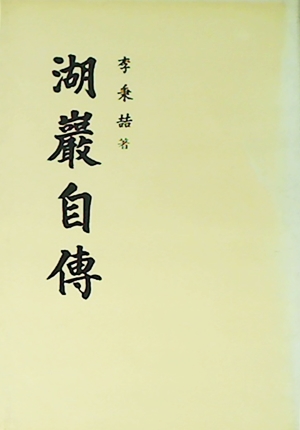 湖巖自傳
李秉喆 著